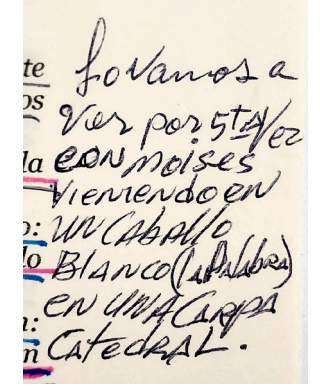 te LoVamos a
os Ver por 5ta Vez
la CON moises
VIENIENDO EN
o: UN CABALLO
lo BLANCO (LA PALABRA)
EN UNA CARPA
n: CATEDRAL.
n